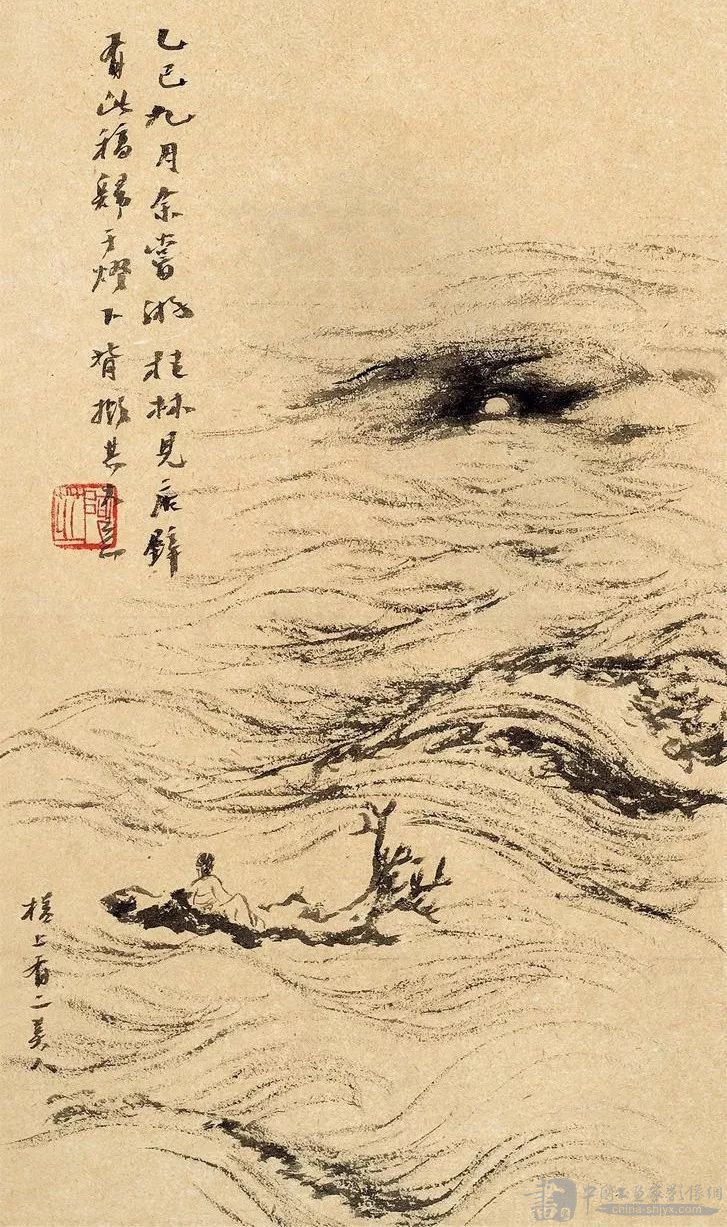 乙巳九月余嘗游桂林見店壁
有此稿歸于燈下背擬其大意
槎上有二美人
中國書畫影像網
china-shjyx.com